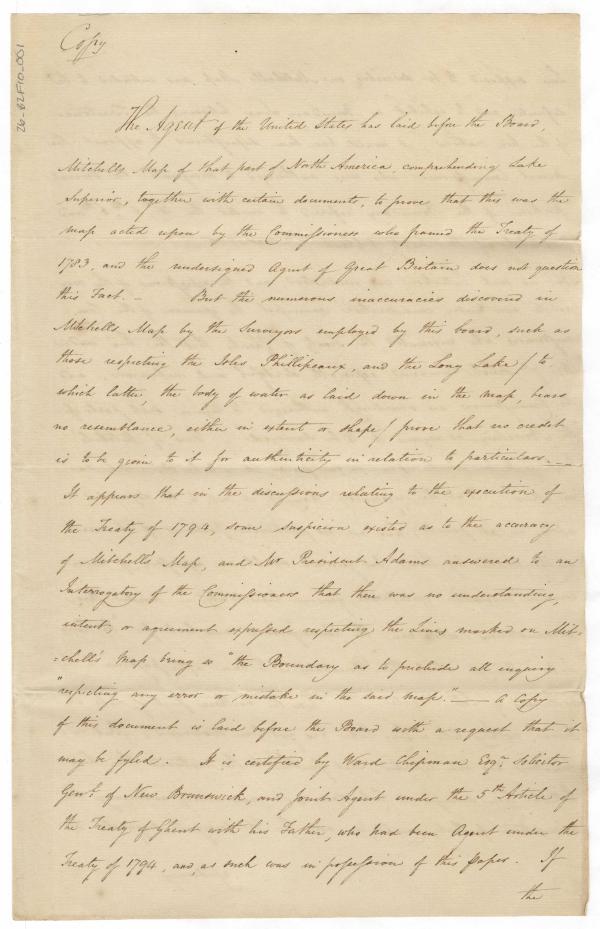 26-62F10-001
Copy
The Agent of the United States has laid before the Board,
Mitchells Map of that part of North America, comprehending Lake
Superior, together with certain documents, to prove that this was the
map acted upon by the Commissioners who framed the Treaty of
1783, and the undersigned Agent of Great Britain does not question
this Fact. - But the numerous inaccuracies discovered in
Mitchells Map by the Surveyors employed by this board, such as
those respecting the Isles Phillipeaux, and the Long Lake / to
which latter, the body of water as laid down in the map, bears
no resemblance, either in extent or shape / prove that no credit
is to be given to it for authenticity in relation to particulars. —
It appears that in the discussions relating to the execution of
the Treaty of 1794, some suspicion existed as to the accuracy
of Mitchell's Map, and Mr President Adams answered to an
Interrogatory of the Commissioners that there was no understanding,
intent, or agreement expressed respecting the Lines marked on Mit-
=chell's map being so "the Boundary as to preclude all enquiry
"respecting any error or mistake in the said map." — A Copy
of this document is laid before the Board with a request that it
may be fyled. It is certified by Ward Chipman Esqr. Solicitor
Genl. of New Brunswick, and joint Agent under the 5th Article of
the Treaty of Ghent with his Father, who had been Agent under the
Treaty of 1794, and, as such was in possession of this Paper. If
the